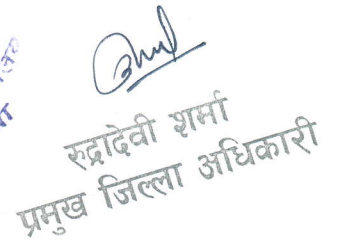 रुद्रादेवी शर्मा
प्रमुख जिल्ला अधिकारी